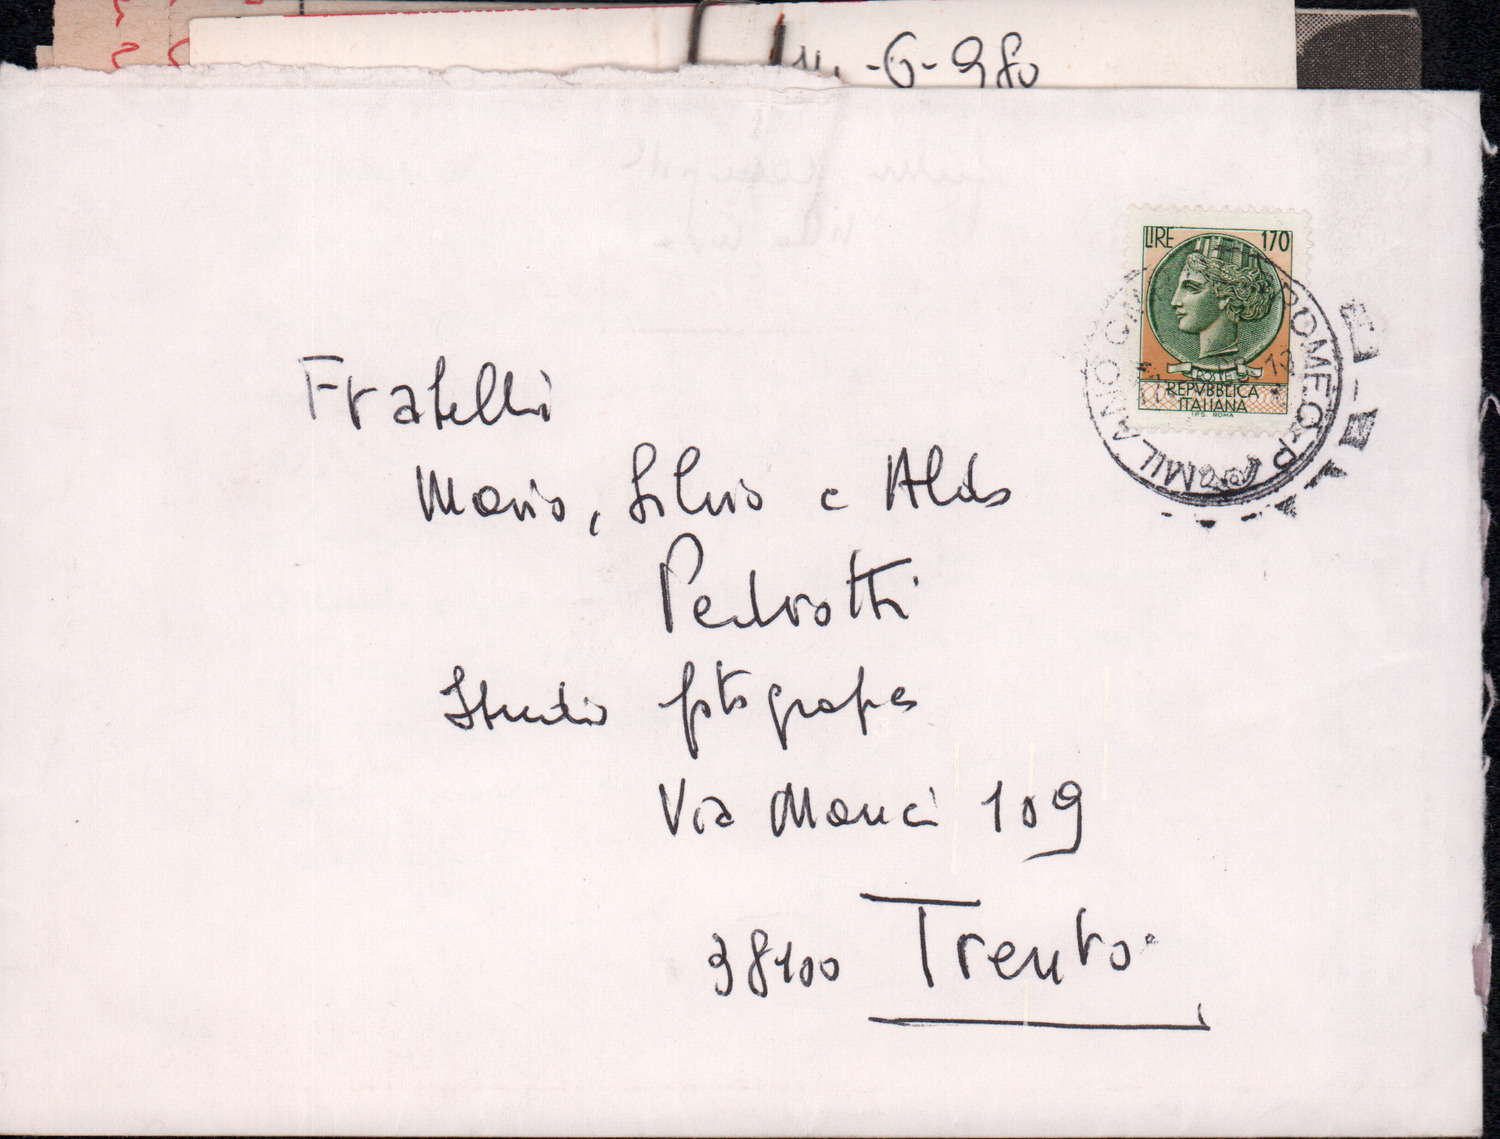 -6-980
LIRE 170
POSTE
REPVBBLICA
ITALIANA
I.P.S. ROMA
ROMEO-P
MILANO
Fratelli
Mario, Silvio e Aldo
Pedrotti
Studio fotografico
Via Manci 109
38100 Trento